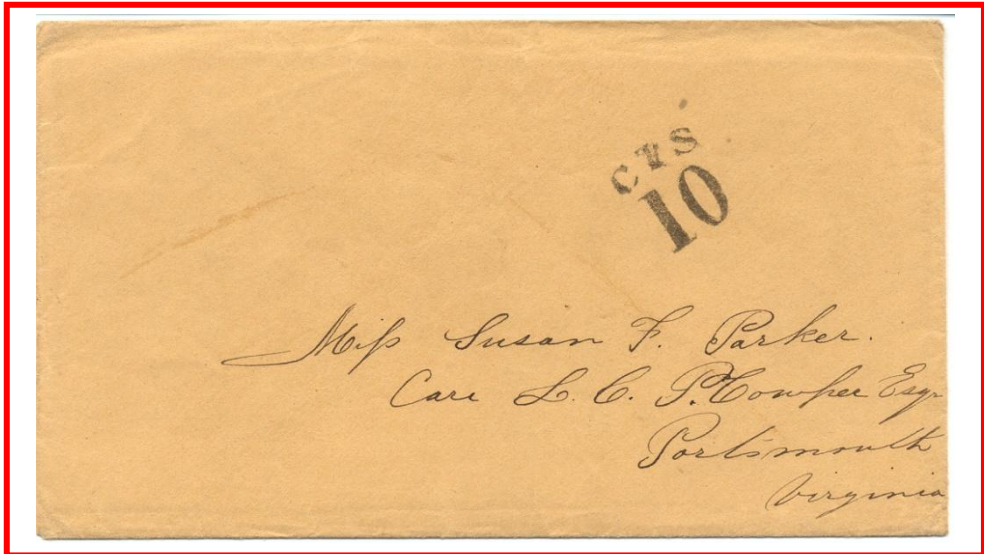 CTS
10
Miſs Susan F. Parker.
Care L. C. P. Cowper Esqr
Portsmouth
Virginia